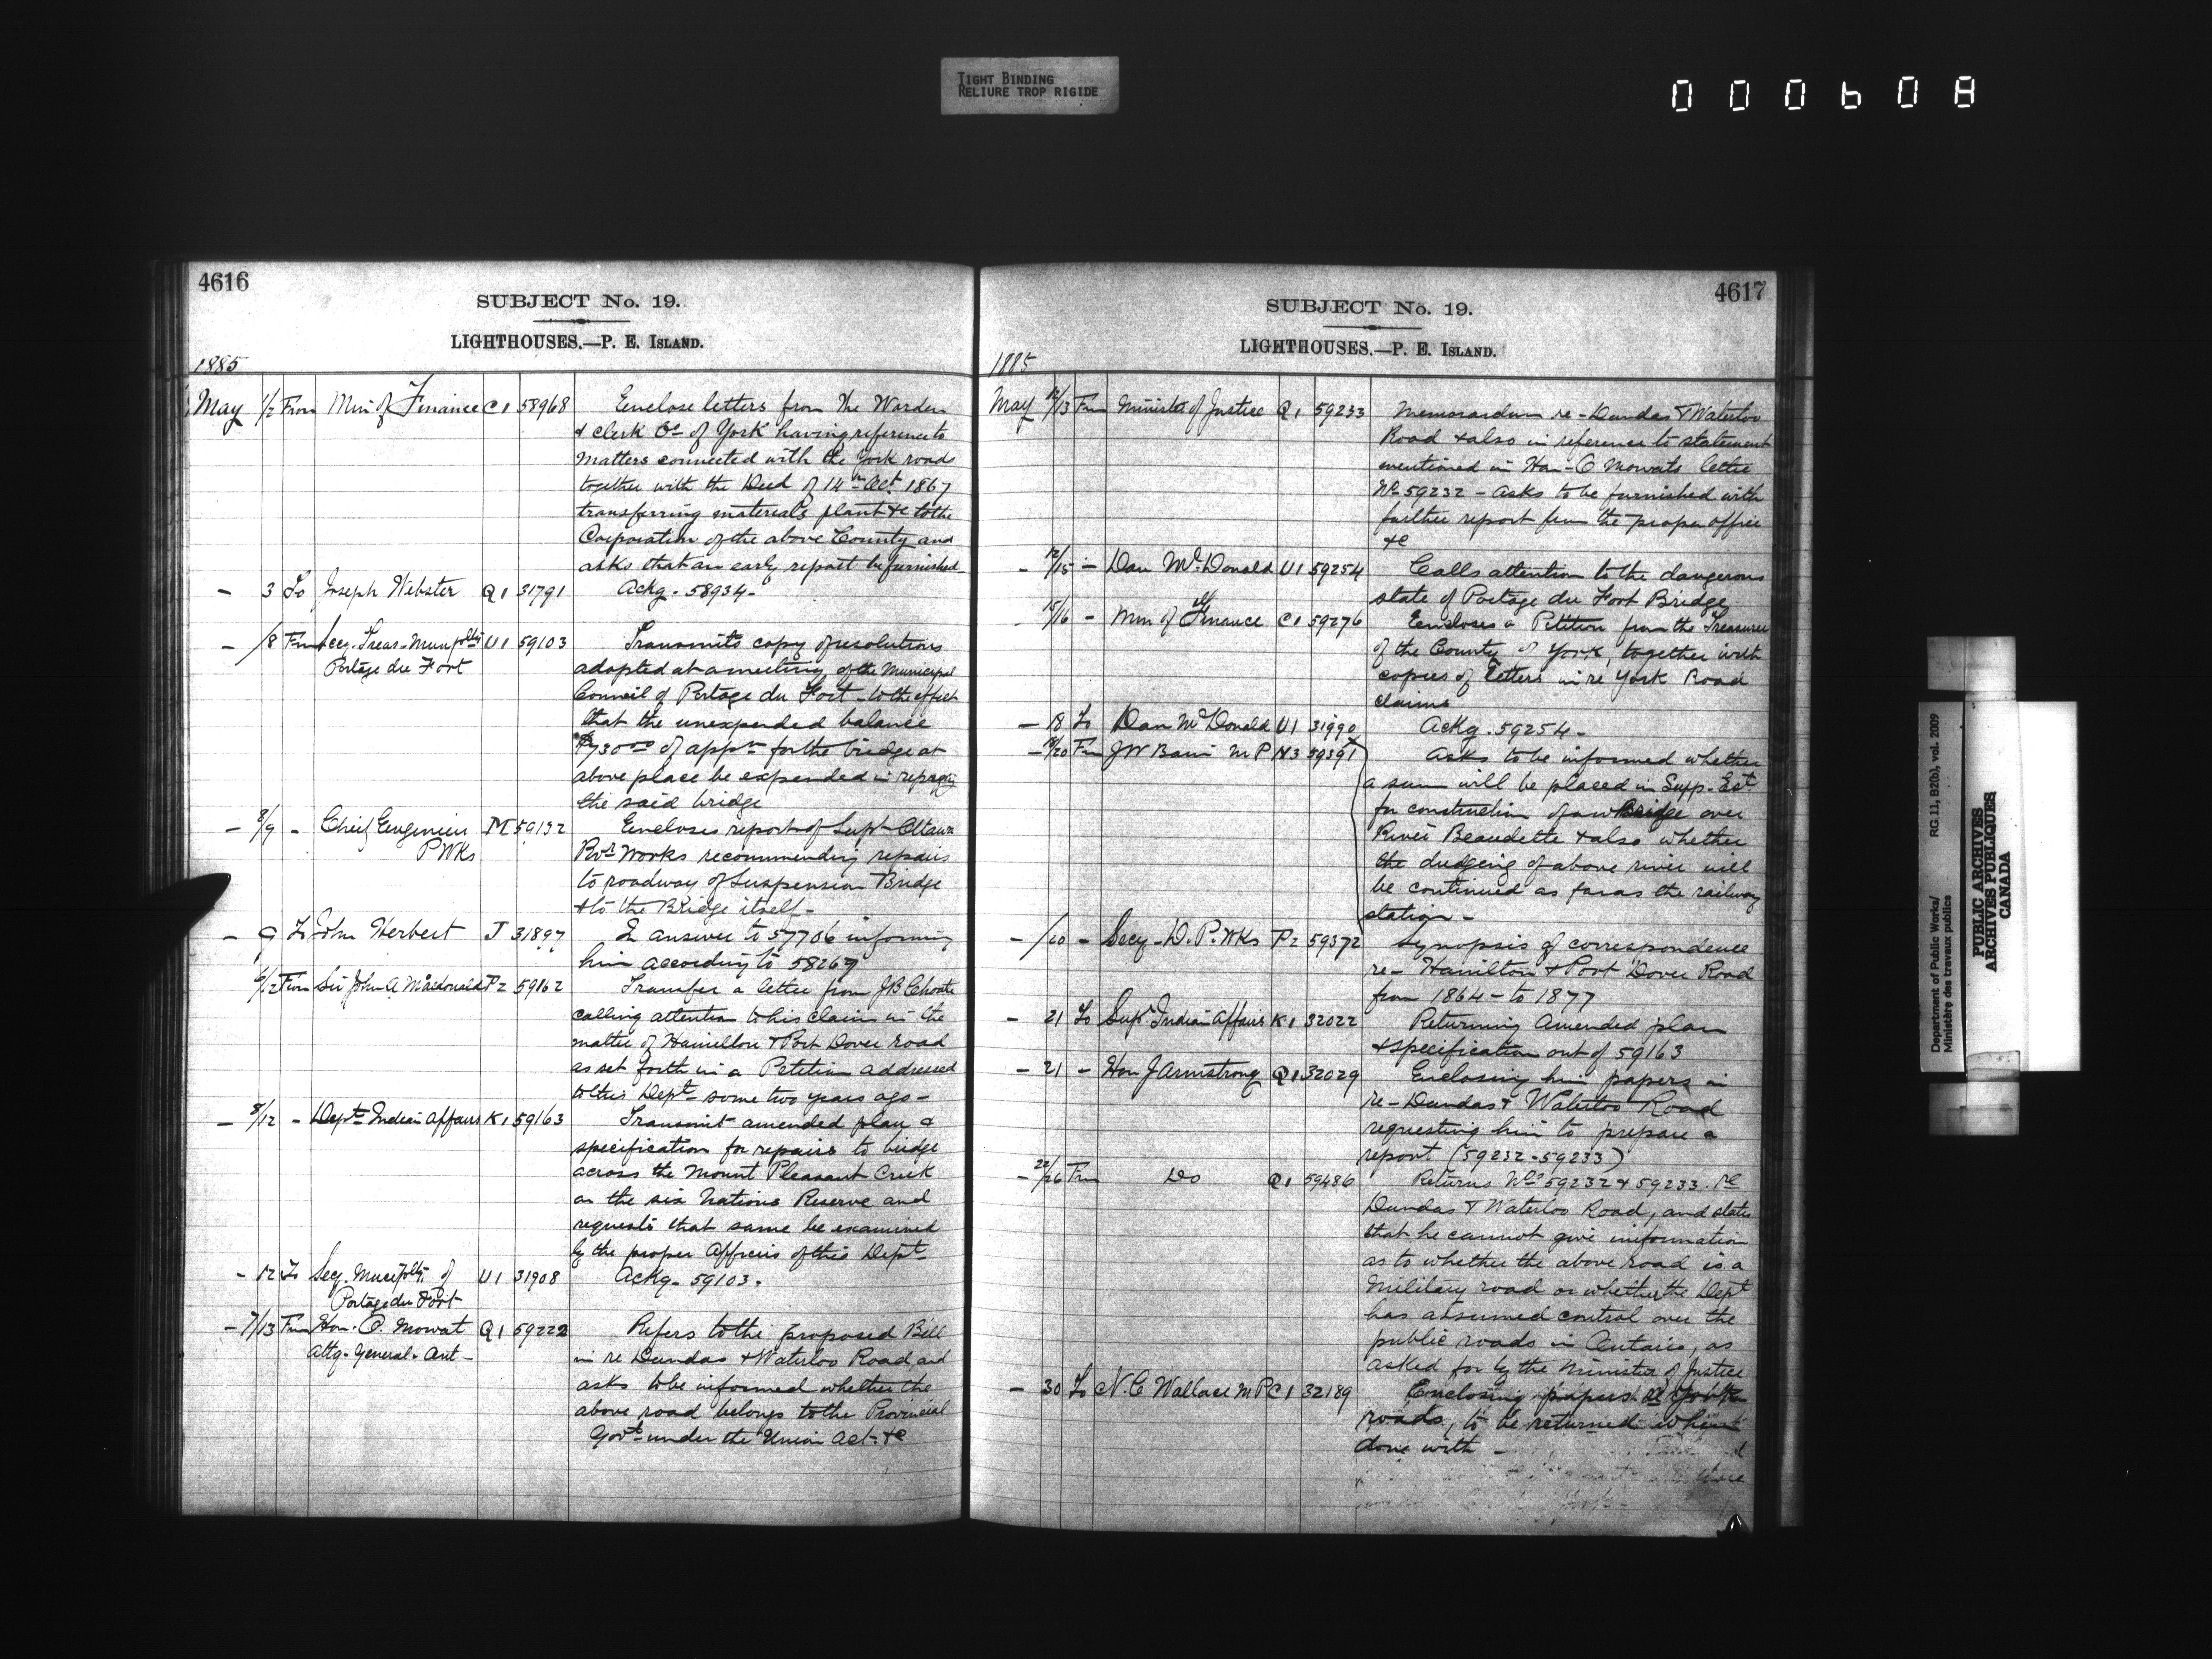 TIGHT BINDING
RELIURE TROP RIGIDE
000608
4616
SUBJECT No. 19.
LIGHTHOUSES.—P. E. ISLAND.
1885
May 1/2 From Min of Finance C1 58968 Enclose letters from the Warden
& Clerk Co of York having reference to
matters connected with the York roads
together with the Deed of 14th Oct. 1867
transferring materials plant &c to the
Corporation of the above County and
asks that an early report be furnished
- 3 To Joseph Webster Q1 31791 Ackg. 58934.
- /8 Frm Secy-Treas-Munpalty U1 59103 Transmits copy of resolutions
Portage du Fort adopted at a meeting of the Municipal
Council of Portage du Fort to the effect
that the unexpended balance
$730 00 of appn for the bridge at
above place be expended in repairing
the said bridge
- 8/9 - Chief Engineer M 59132 Encloses report of Supt Ottawa
P Wks Rvr Works recommending repairs
to roadway of Suspension Bridge
& to the Bridge itself -
- 9 To John Herbert J 31897 In answer to 57706 informing
him according to 58269
6/12 From Sir John A Macdonald P2 59162 Transfer a letter from J B Choate
calling attention to his claim in the
matter of Hamilton & Port Dover road
as set forth in a Petition addressed
to this Dept some two years ago -
- 8/12 - Dept Indian Affairs K1 59163 Transmit amended plan &
specification for repairs to bridge
across the Mount Pleasant Creek
on the Six Nations Reserve and
requests that same be examined
by the proper Officers of this Dept
- 12 To Secy. Municplty of U1 31908 Ackg. 59103.
Portage du Fort
- 7/13 Frm Hon. O. Mowat Q1 59222 Refers to the proposed Bill
Atty-General-Ont- in re Dundas & Waterloo Road and
asks to be informed whether the
above road belongs to the Provincial
Govt under the Union Act. &c
4617
SUBJECT No. 19.
LIGHTHOUSES.—P. E. ISLAND.
1885
May 12/13 Frm Minister of Justice Q1 59233 Memorandum re-Dundas & Waterloo
Road & also in reference to statement
mentioned in Hon-O Mowats letter
No 59232 - asks to be furnished with
further report from the proper officer
&c
- 12/15 - Dan McDonald U1 59254 Calls attention to the dangerous
state of Portage du Fort Bridge
15/16 - Min of Finance C1 59276 Encloses a Petition from the Treasurer
of the County of York, together with
copies of letters in re York Road
claims
- 18 To Dan McDonald U1 31990 Ackg. 59254 -
- 18/20 Frm J W Bain M P N3 59391 Asks to be informed whether
a sum will be placed in Supp-Est
for construction of a w Bridge over
River Beaudette & also whether
the dredging of above river will
be continued as far as the railway
station -
- /20 - Secy-D. P. Wks P2 59372 Synopsis of correspondence
re- Hamilton & Port Dover Road
from 1864 - to 1877
- 21 To Supt Indian Affairs K1 32022 Returning amended plan
& specification out of 59163
- 21 - Hon J Armstrong Q1 32029 Enclosing him papers in
re-Dundas & Waterloo Road
requesting him to prepare a
report (59232-59233)
- 22/26 Frm Do Q1 59486 Returns Nos 59232 & 59233. re
Dundas & Waterloo Road, and states
that he cannot give information
as to whether the above road is a
Military road or whether the Dept
has assumed control over the
public roads in Ontario, as
asked for by the Minister of Justice
- 30 To N. C Wallace M P C1 32189 Enclosing papers re York
roads, to be returned when
done with -
Department of Public Works/ RG 11, B2(b), vol. 2009
Ministère des travaux publics
PUBLIC ARCHIVES
ARCHIVES PUBLIQUES
CANADA